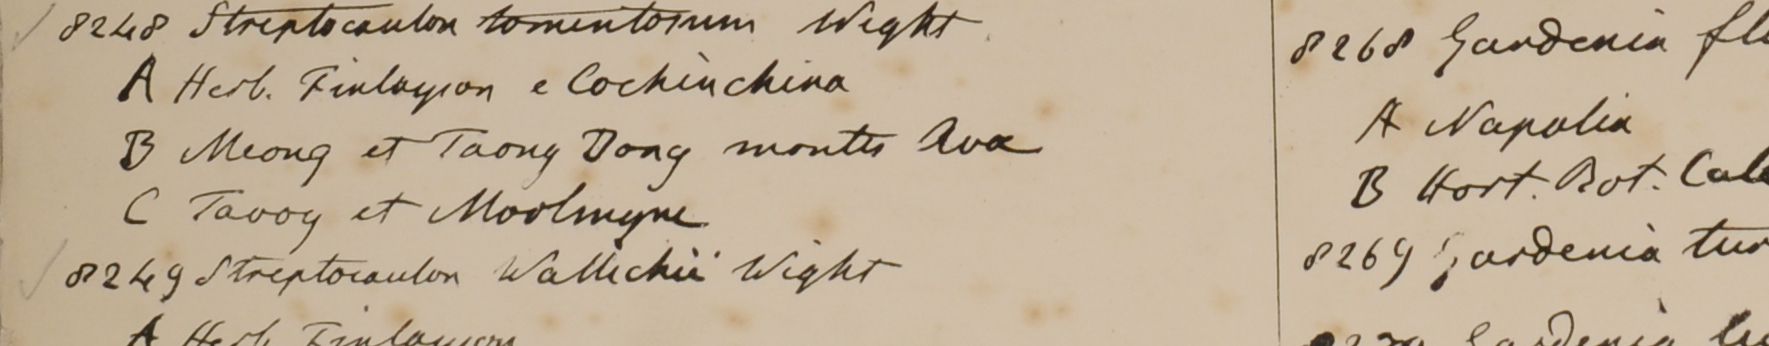 8248 Streptocaulon tomentosum Wight
A Herb. Finlayson e Cochinchina
B Meong et Taong Dong montes Ava
C Tavoy et Moolmyne
8249 Streptocaulon Wallichii Wight
A Herb. Finlayson
8268 Gardenia fl
A Napalia
B Hort. Bot. Calc
8269 Gardenia tur
8270 Gardenia lu